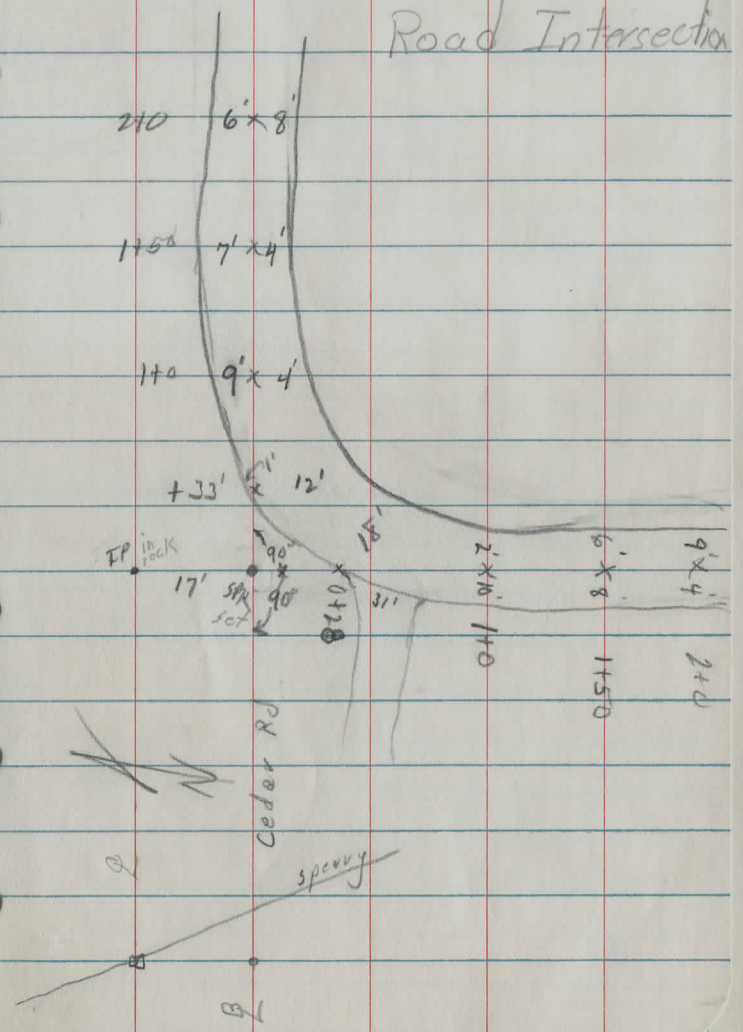 Road Intersection
2+0 6' x 8'
1+50 7' x 4'
1+0 9' x 4'
1'
+33' x 12'
18'
IP in rock
90°
17' SPK set
90°
x 0+28
31'
2' x 10' 1+0
6' x 8' 1+50
9' x 4' 2+0
Cedar Rd
N
sperry